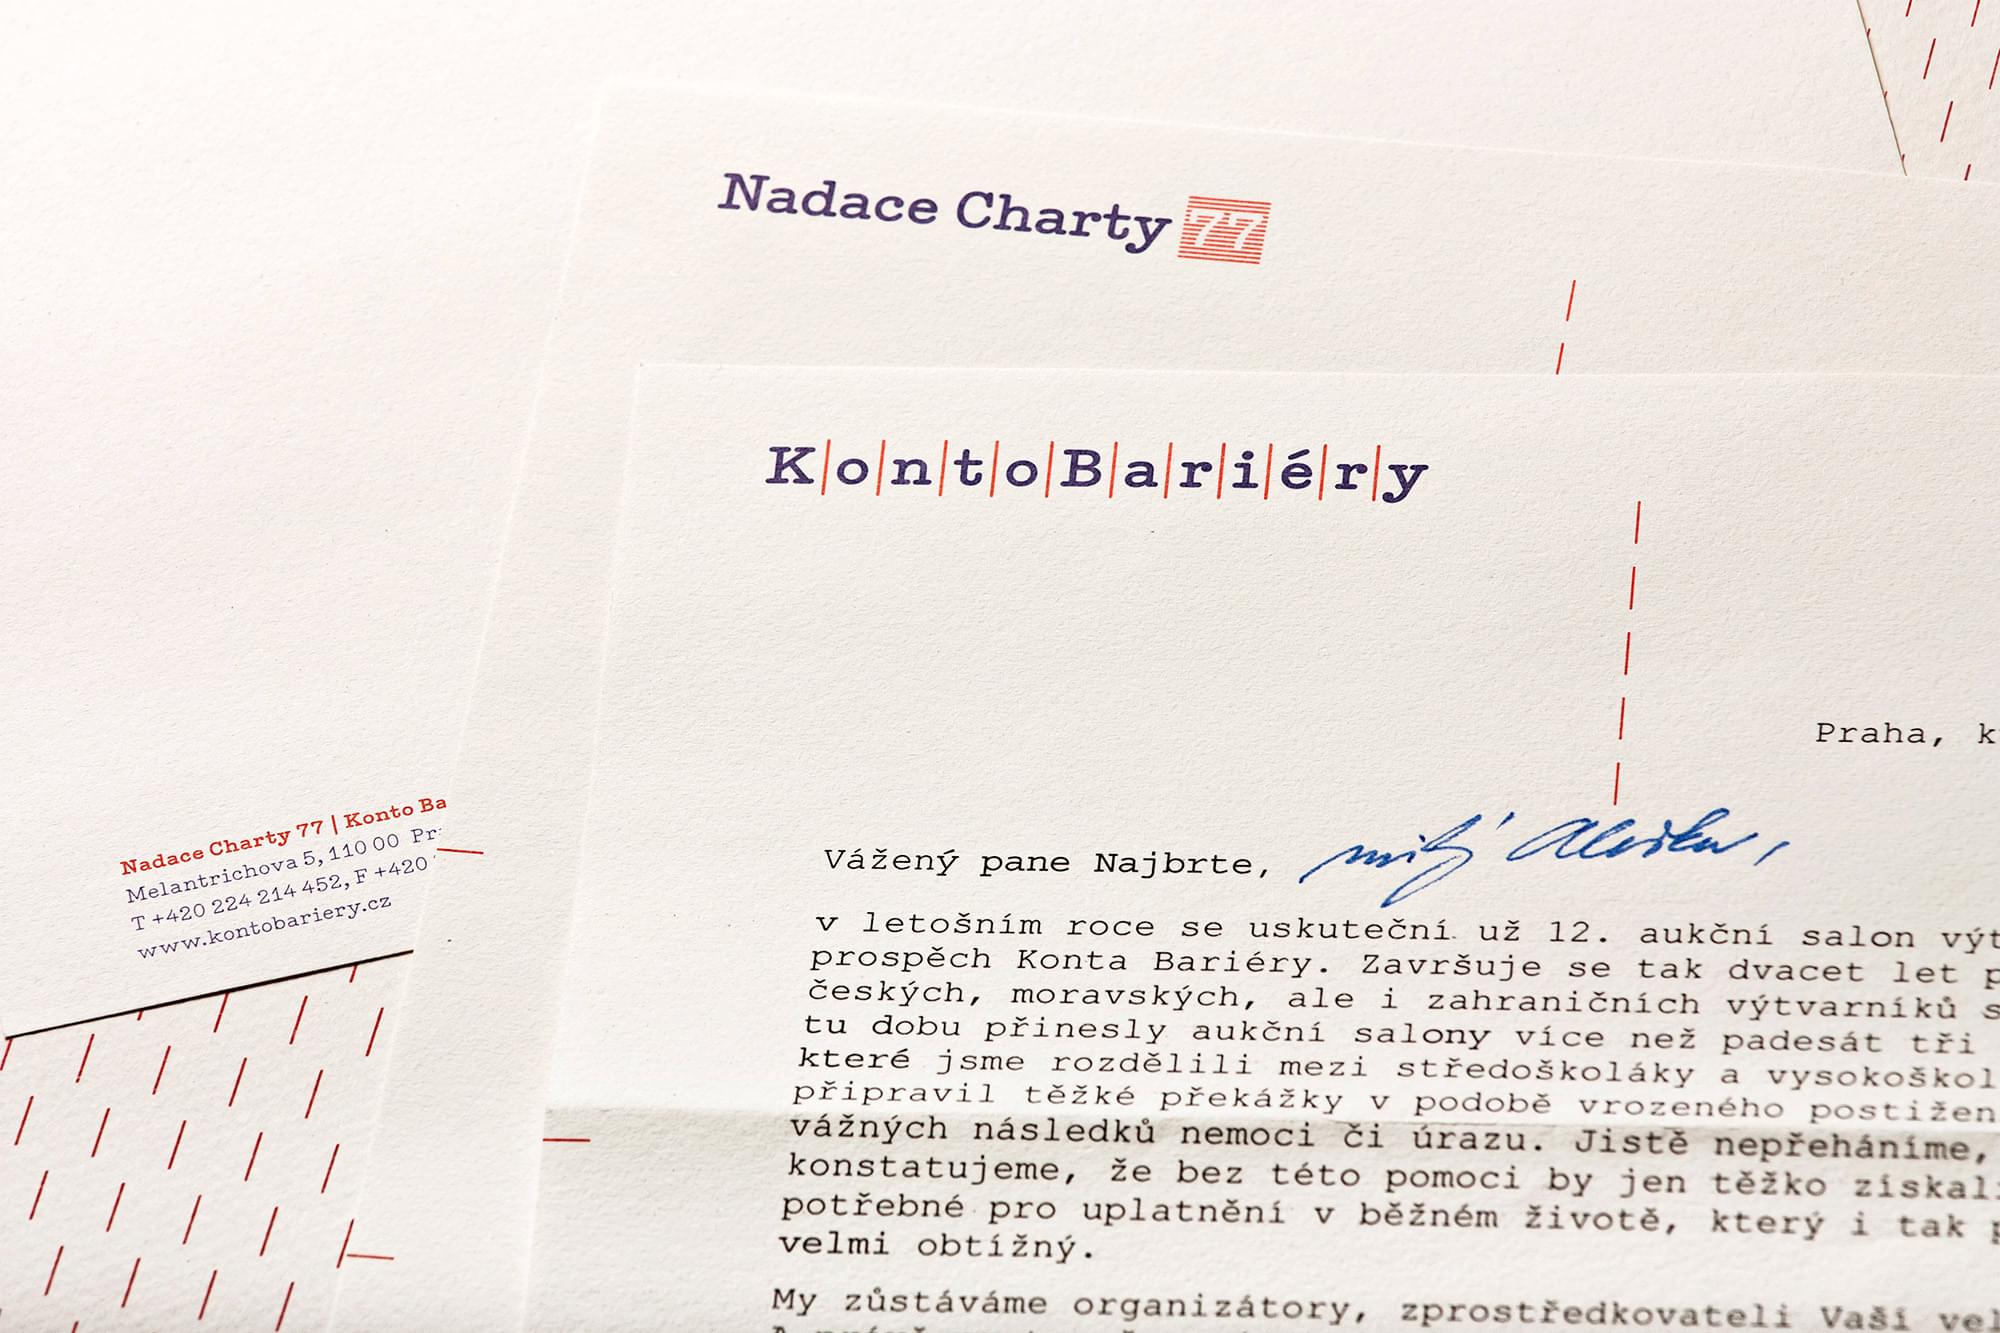 Nadace Charty 77
KontoBariéry
Praha,
Vážený pane Najbrte, milý Aleši,
v letošním roce se uskuteční už 12. aukční salon
prospěch Konta Bariéry. Završuje se tak dvacet let
českých, moravských, ale i zahraničních výtvarníků
tu dobu přinesly aukční salony více než padesát tři
které jsme rozdělili mezi středoškoláky a
připravil těžké překážky v podobě vrozeného
vážných následků nemoci či úrazu. Jistě nepřeháníme,
konstatujeme, že bez této pomoci by jen těžko
potřebné pro uplatnění v běžném životě, který i tak
velmi obtížný.
My zůstáváme organizátory, zprostředkovateli Vaší
Nadace Charty 77 | Konto Ba
Melantrichova 5, 110 00 Pr
T +420 224 214 452, F +420
www.kontobariery.cz